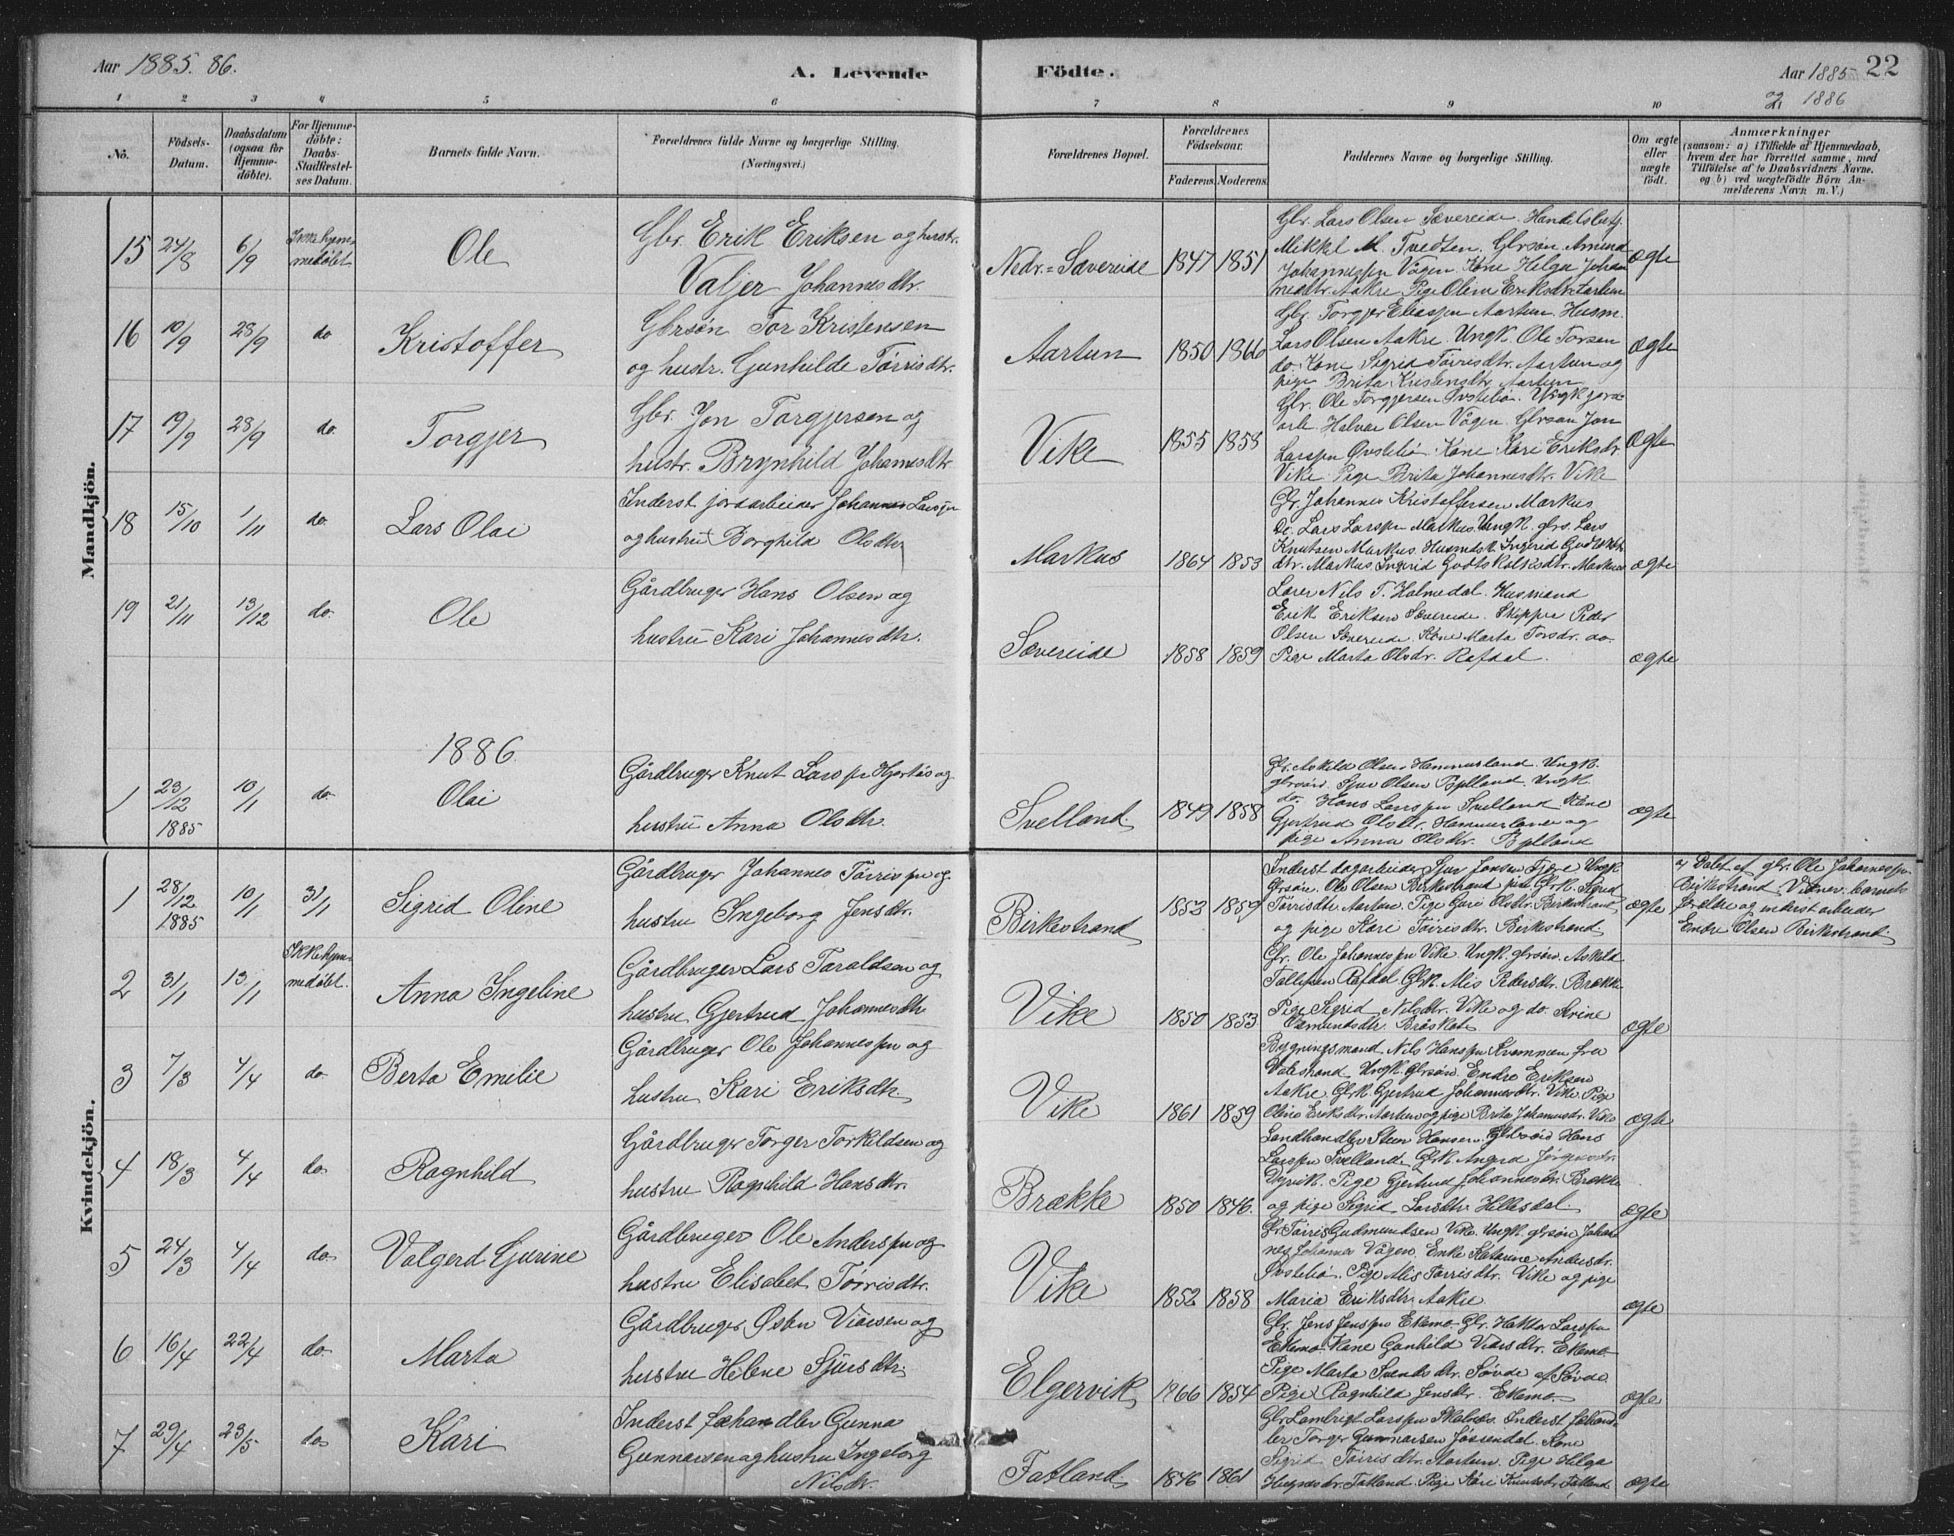 Aar 1885. 86.
A. Levende
Födte.
Aar 1885
og 1886
22
1 2 3 4 5 6 7 8 9 10
No.
Födsels-
Datum.
Daabsdatum
(ogsaa for
Hjemme-
döbte).
For Hjemme-
döbte:
Daabs-
Stadfæstel-
ses Datum.
Barnets fulde Navn.
Forældrenes fulde Navne og borgerlige Stilling.
(Næringsvei.)
Forældrenes Bopæl.
Forældrenes
Födselsaar.
Faderens. Moderens.
Faddernes Navne og borgerlige Stilling.
Om ægte
eller
uægte
födt.
Anmærkninger
(saasom: a) i Tilfælde af Hjemmedaab,
hvem der har forrettet samme, med
Tilföielse af to Daabsvidners Navne,
og b) ved uægtefödte Börn An-
melderens Navn m. V.)
Mandkjön.
15 24/8 6/9 Ikke hjem-
medøbt
Ole
Gbr. Erik Eriksen og hustr.
Valjer Johannesdtr.
Nedr. Sævereide 1847 1851
Gbr. Lars Olsen Sævereide. Handelsbetj.
Mikkel M. Tvedten. Gbrsøn Amund
Johannessen Vågen. Kone Helga Johan
nesdtr. Aakre Pige Oline Eriksdtr. Aartun
ægte
16 10/9 28/9 do
Kristoffer
Gbrsøn Tor Kristensen
og hustr. Gunhilde Tørrisdtr.
Aartun 1850 1860
Gbr. Torgjer Eliassen Aartun Husm.
Lars Olsen Aakre. Ungk. Ole Torsen
do. Kone Sigrid Tørrisdtr. Aartun og
pige Brita Kristensdtr. Aartun
ægte
17 19/9 28/9 do.
Torgjer
Gbr. Jon Torgjersen og
hustr. Brynhild Johannesdtr
Vike 1855 1858
Gbr. Ole Torgjersen Øvstebø. Ungk jord
arb. Halvar Olsen Vågen. Gbrsøn Jon
Larssen Øvstebø Kone Kari Eriksdr.
Vike. Pige Brita Johannesdtr. Vike
ægte
18 15/10 1/11 do.
Lars Olai
Inderst jordarbeider Johannes Larssen
og hustru Borghild Olsdtr
Markus 1864 1853
Gbr. Johannes Kristoffersen Markus
Do. Lars Larssen Markus. Ungk. gbrs. Lars
Knutsen Markus. Ingerid
dtr. Markus Ingrid Godtskalksdtr. Markus
ægte
19 21/11 13/12 do.
Ole
Gårdbruger Hans Olsen og
hustru Kari Johannesdtr.
Sævereide 1858 1859
Lærer Nils T. Halmedal. Husmand
Erik Eriksen Sævereide. Skipper Peder
Olsen Sævereide. Kone Marta Torsdr. do.
Pige Marta Olsdr. Rafdal.
ægte
1886
1 23/12 1885 10/1 do
Olai
Gårdbruger Knut Larssen Hjertås og
hustru Anna Olsdtr.
Svelland. 1849 1858
Gbr. Askild Olsen Hammerland. Ungk.
gbrsøn. Sjur Olsen Bjelland. Ungk.
do. Hans Larssen Svelland Kone
Gjertrud Olsdtr. Hammerland og
pige Anna Olsdtr. Bjelland
ægte
Kvindekjön.
1 28/12 1885 10/1 31/1
Sigrid Oline
Gårdbruger Johannes Tørrissen og
hustru Ingeborg Jensdtr.
Birkestrand 1853 1859
Inderst dagarbeider Sjur Jonsen Fjære Ungk
Gbrsøn. Ole Olsen Birkestrand Sigrid
Tørrisdtr. Aartun. Pige Guro Olsdtr. Birkestrand
og pige Kari Tørrisdtr. Birkestrand.
ægte
a) Døbt af gbr. Ole Johannessen
Birkestrand. Vidner. barnets
forældre og inderst arbeider
Endre Olsen Birkestrand.
2 31/1 13/1 Ikke hjem-
medøbt.
Anna Ingeline
Gårdbruger Lars Taraldsen og
hustru Gjertrud Johannesdtr
Vike 1850 1853
Gbr. Ole Johannessen Vike. Ungk. gbrsøns. Askild
Tollefsen Rafdal Gbrk. Mis Pedersdtr. Brække
Pige Sigrid Nilsdtr. Vike og do. Stine
Osmundsdtr. Bråskat
ægte
3 7/3 4/4 do
Berta Emilie
Gårdbruger Ole Johannessen og
hustru Kari Eriksdtr.
Vike 1861 1859
Bygningsmand Nils Hanssen Krammen fra
Valestrand Ungk. Gbrsøn. Endre Eriksen
Aakre Gbrk. Gjertrud Johannesdtr. Vike. Pige
Oline Eriksdtr. Aartun og pige Brita Johannesdr. Vike
ægte
4 18/3 4/4 do
Ragnhild
Gårdbruger Torger Torkildsen og
hustru Ragnhild Hansdtr.
Brække 1850 1846.
Landhandler Steen Hansen. Gbrsøn Hans
Larssen Svelland. Gbrk. Angerd Jørgensdtr.
Dyvik. Pige Gjertrud Johannesdtr. Brække
og pige Sigrid Larsdtr. Hillesdal.
ægte
5 24/3 4/4 do
Valgerd Gurine
Gårdbruger Ole Anderssen og
hustru Elisabet Tørrisdtr.
Vike 1852 1858
Gbr. Tørris Gudmundsen Vike. Ungk. gbrsøn Johan
nes Johannes Vågen. Enke Katarine Andersdtr.
Øvstebø. Pige Mis Tørrisdtr. Vike og pige
Maria Eriksdtr. Aakre.
ægte
6 16/4 22/4 do
Marta
Gårdbruger Østen Viarsen og
hustru Helene Sjursdtr.
Elgervik 1866 1854
Gbr. Jens Jenssen Ekemo Gbr. Haktor Larssen
Ekemo. Kone Gunhild Viarsdtr. Ekemo
Pige Marta Svendsdtr. Søvde af Søvde
Pige Ragnhild Jensdtr. Ekemo.
ægte
7 29/4 23/5 do
Kari
Inderst fæhandler Gunna
Gunnarsen og hustru Ingeborg
Nilsdr.
Fatland. 1846 1861
Gbr. Lambrigt Larssen Skålnes. Inderst fæhand
ler Torger Gunnarsen Jøssendal. Kone
Sigrid Tørrisdtr. Aartun. Pige Helga
Hagnesdtr. Fatland. Pige Kari Knutsdtr. Fatland.
ægte